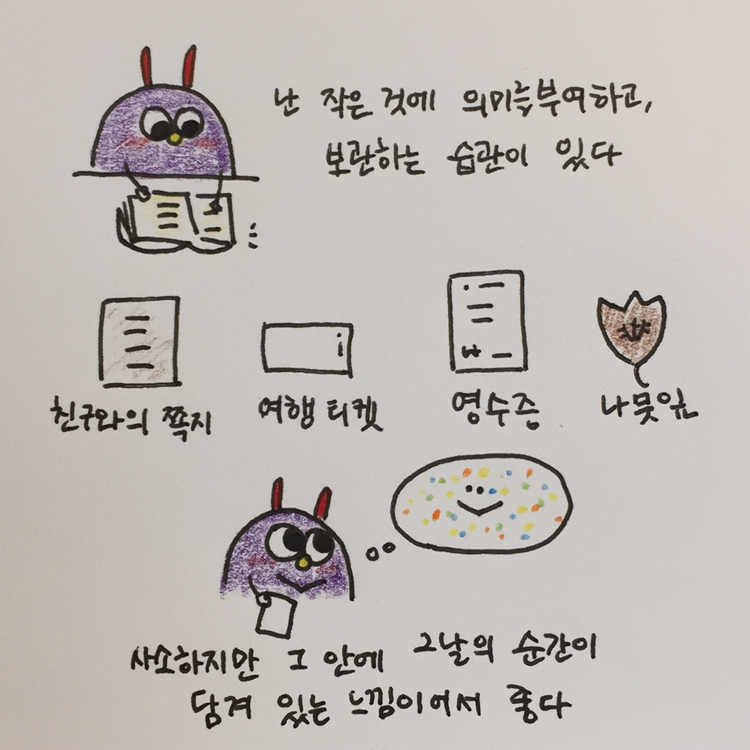 난 작은 것에 의미를부여하고,
보관하는 습관이 있다
친구와의 쪽지
여행 티켓
영수증
나뭇잎
사소하지만 그 안에 그날의 순간이
담겨 있는 느낌이어서 좋다